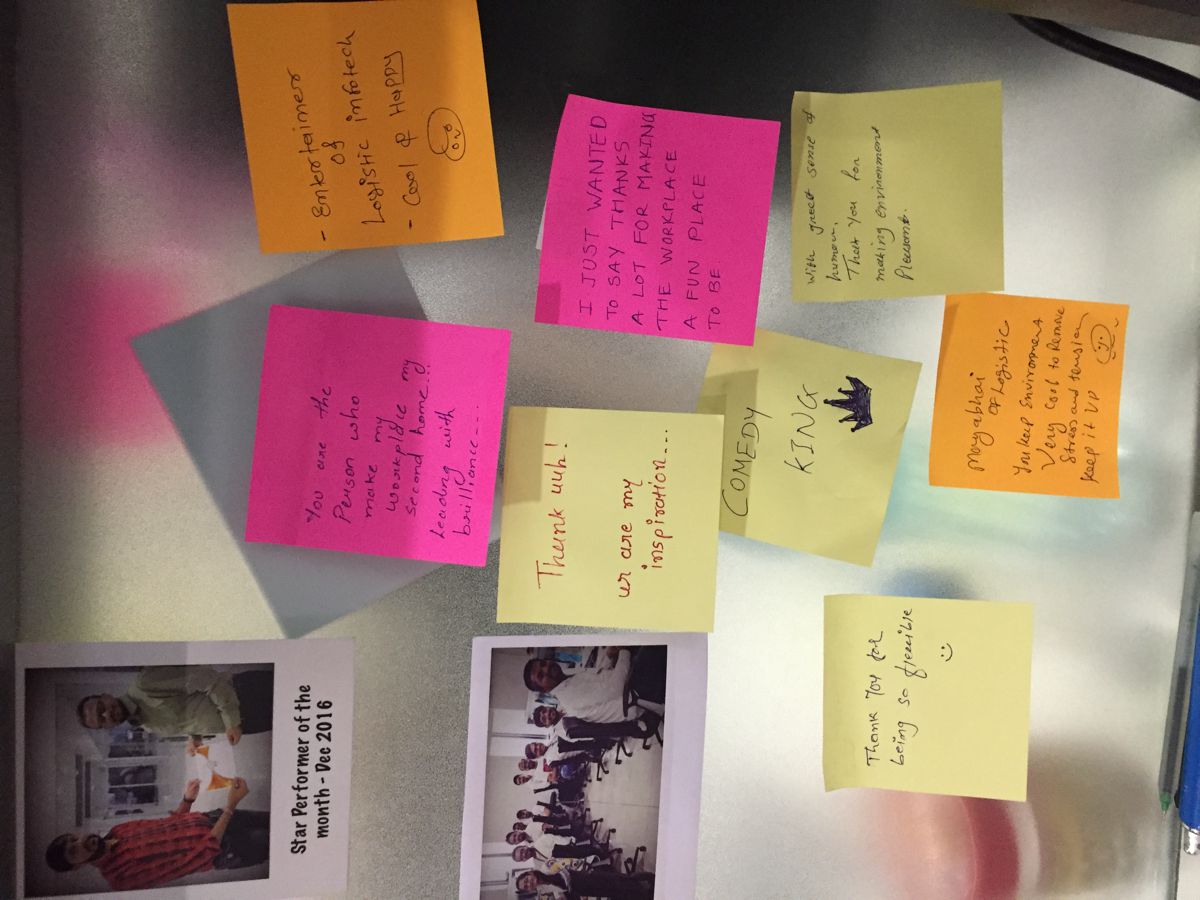 Star Performer of the
month - Dec 2016
You are the
Person who
make my
workplace my
second home...
Leading with
brilliance...
- Entertainer
of
Logistic infotech
- Cool & HAPPY
Thank uuh!
ur are my
inspiration...
I JUST WANTED
TO SAY THANKS
A LOT FOR MAKING
THE WORKPLACE
A FUN PLACE
TO BE.
COMEDY
KING
with great sense of
humour.
That you for
making environment
Pleasant.
Thank you for
being so flexible
Mayabhai
OF Logistic
You keep Environment
Very Cool to Remove
Stress and tension
Keep it UP